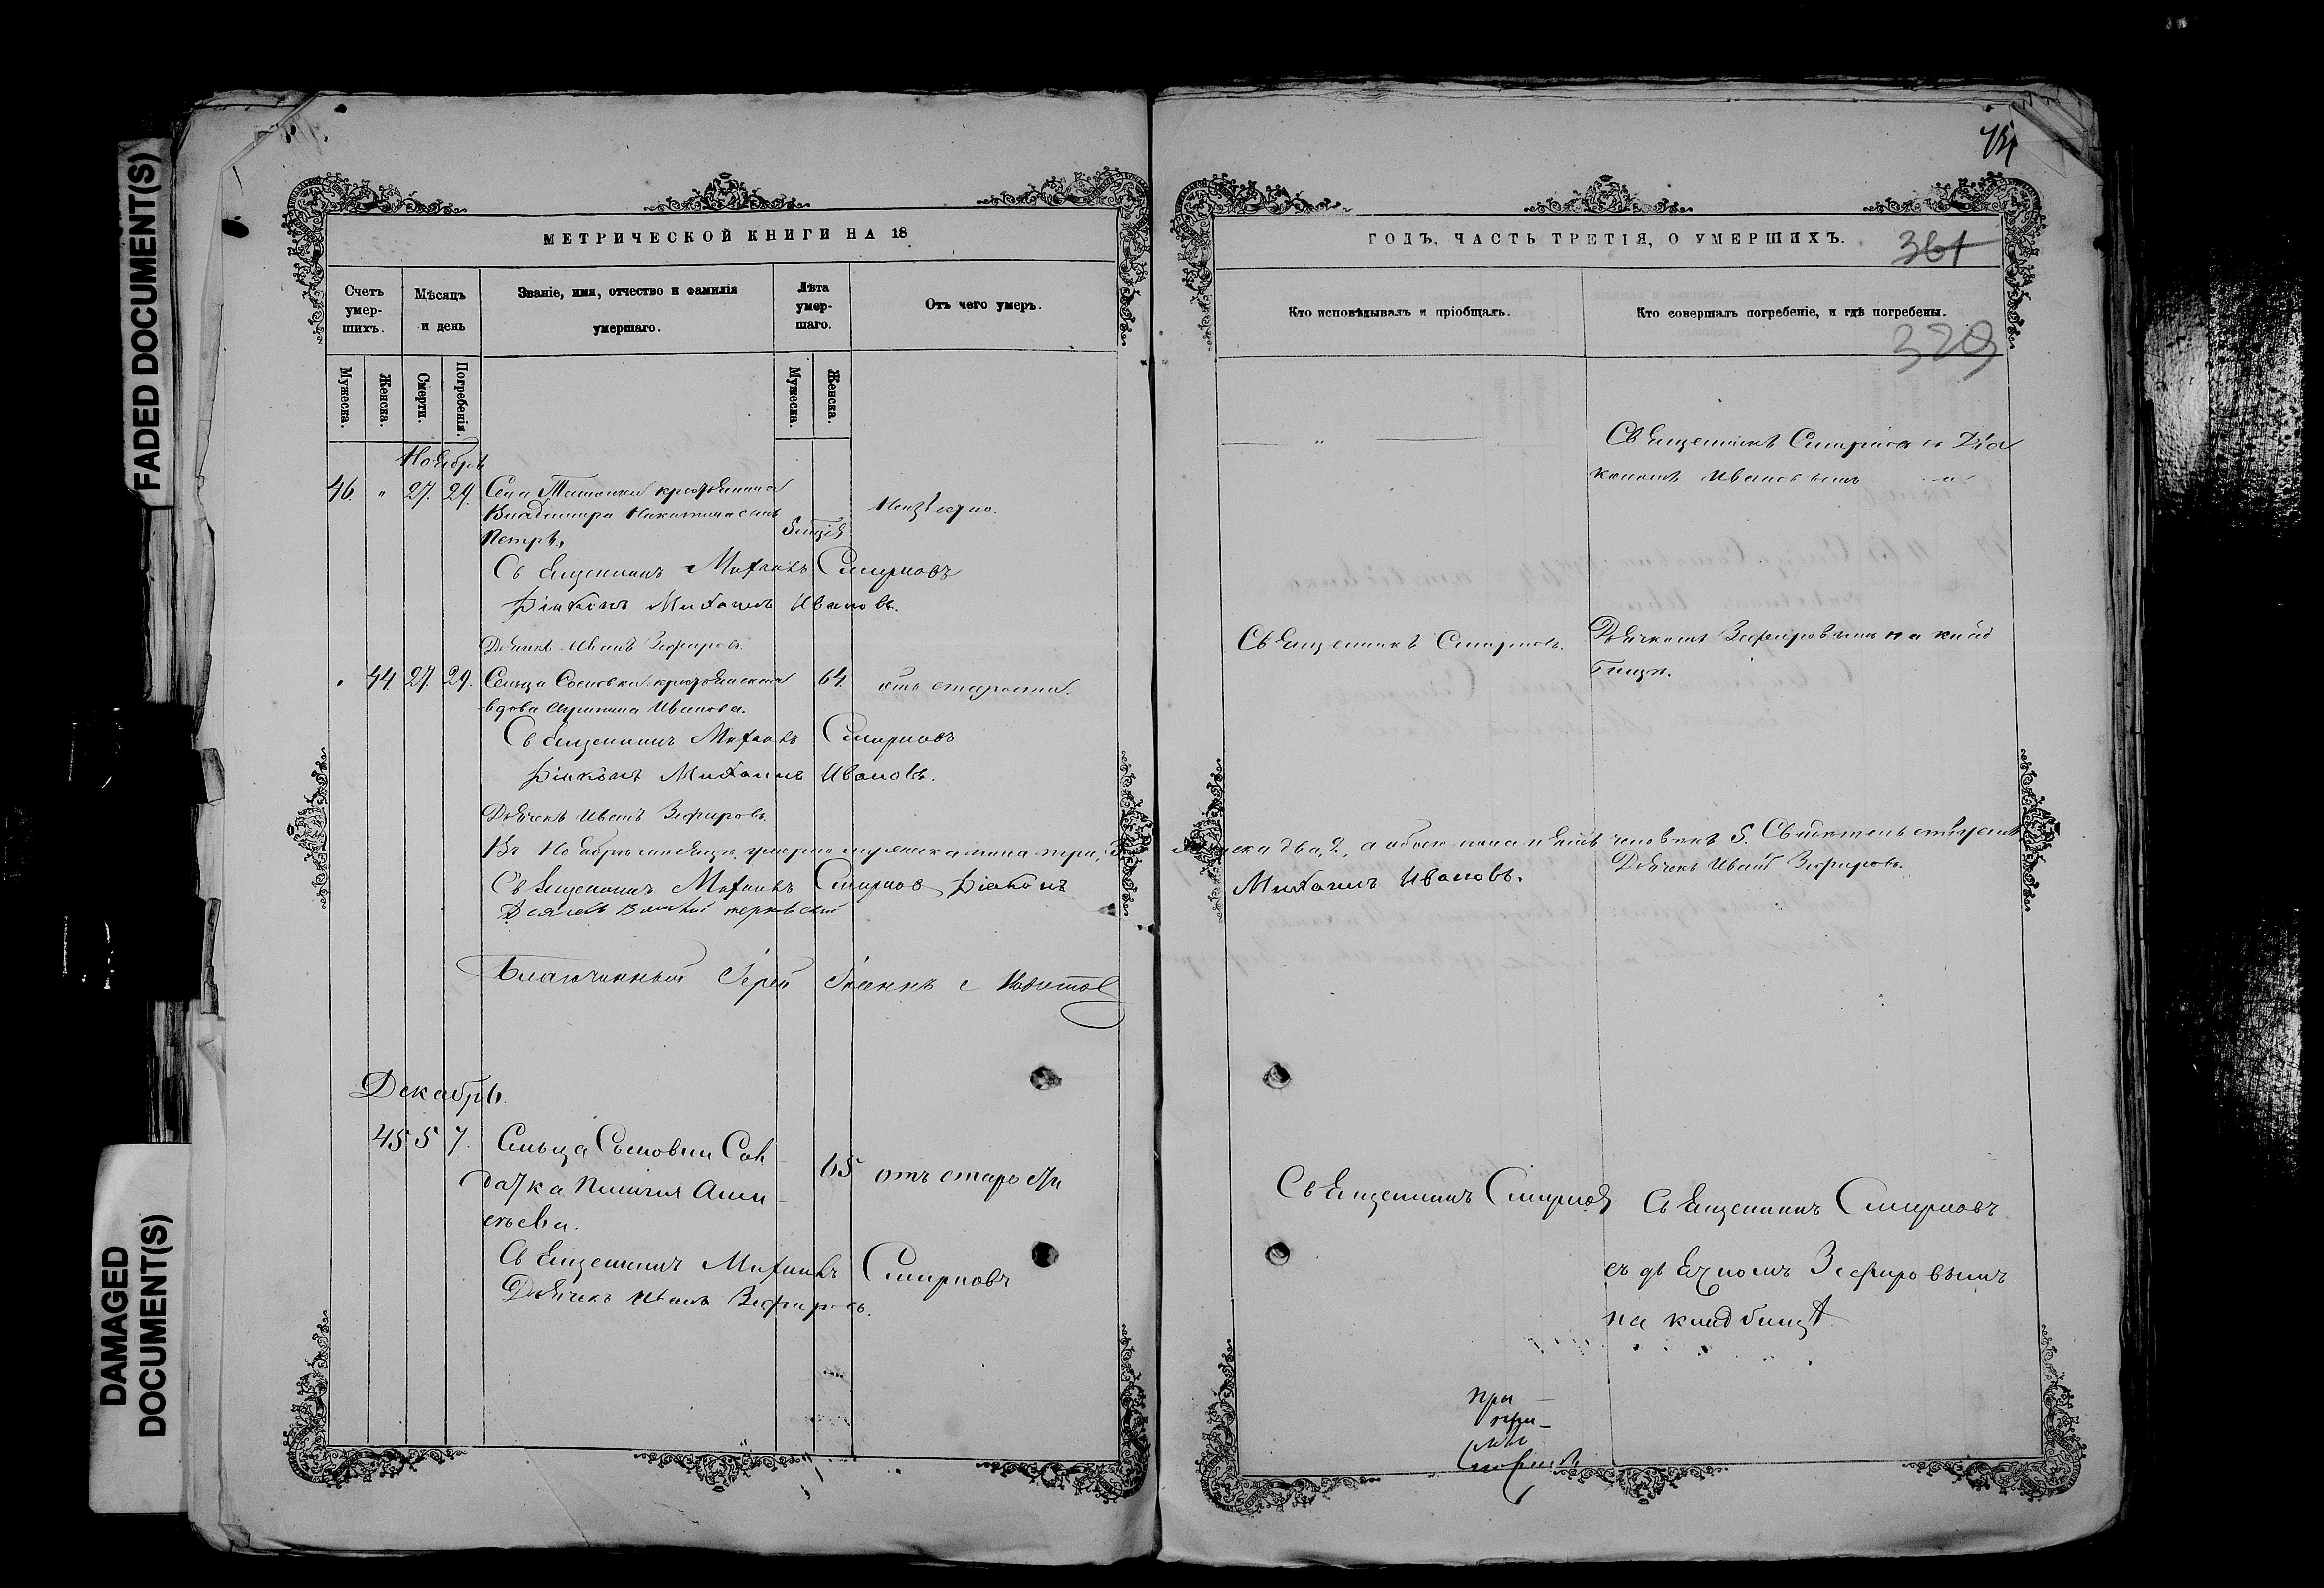 FADED DOCUMENT(S)
DAMAGED
DOCUMENT(S)
МЕТРИЧЕСКОЙ КНИГИ НА 18
Счетъ умер-шихъ.
Мѣсяцъ и день
Званіе, имя, отчество и фамилія умершаго.
Лѣта умер-шаго.
Отъ чего умеръ.
Мужеска.
Женска.
Смерти.
Погребенія.
Мужеска.
Женска.
Ноябрь
46. " 27. 29. Села крестьянина
Владимира Никитина сынъ
Петръ,
Священникъ Михаилъ Смирновъ
Діаконъ Михаилъ Ивановъ.
Дьячекъ Иванъ Зефировъ.
" 44. 27. 29. Сельца Сосновки крестьянская 64. отъ старости.
вдова Ивановa.
Священникъ Михаилъ Смирновъ
Діаконъ Михаилъ Ивановъ.
Дьячекъ Иванъ Зефировъ.
Въ Ноябрѣ мѣсяцѣ умерло мужеска пола три, 3
Священникъ Михаилъ Смирновъ Діаконъ
Благочинный Іерей Іоаннъ
Декабрь.
45 5 7. Сельца Сосновки Сол 65 отъ старости
датка
ева.
Священникъ Михаилъ Смирновъ
Дьячекъ Иванъ Зефировъ.
ГОДЪ, ЧАСТЬ ТРЕТІЯ, О УМЕРШИХЪ.
361
Кто исповѣдывалъ и пріобщалъ.
Кто совершалъ погребеніе, и гдѣ погребены.
329
Священникъ Смирновъ съ Діа
кономъ Ивановымъ
Священникъ Смирновъ.
Дьячкомъ Зефировымъ на клад
бищѣ.
женска два, 2, а обоего пола пять человѣкъ 5.
Михаилъ Ивановъ.
Дьячекъ Иванъ Зефировъ.
Священникъ Смирновъ
Священникъ Смирновъ
съ дьячкомъ Зефировымъ
на кладбищѣ.